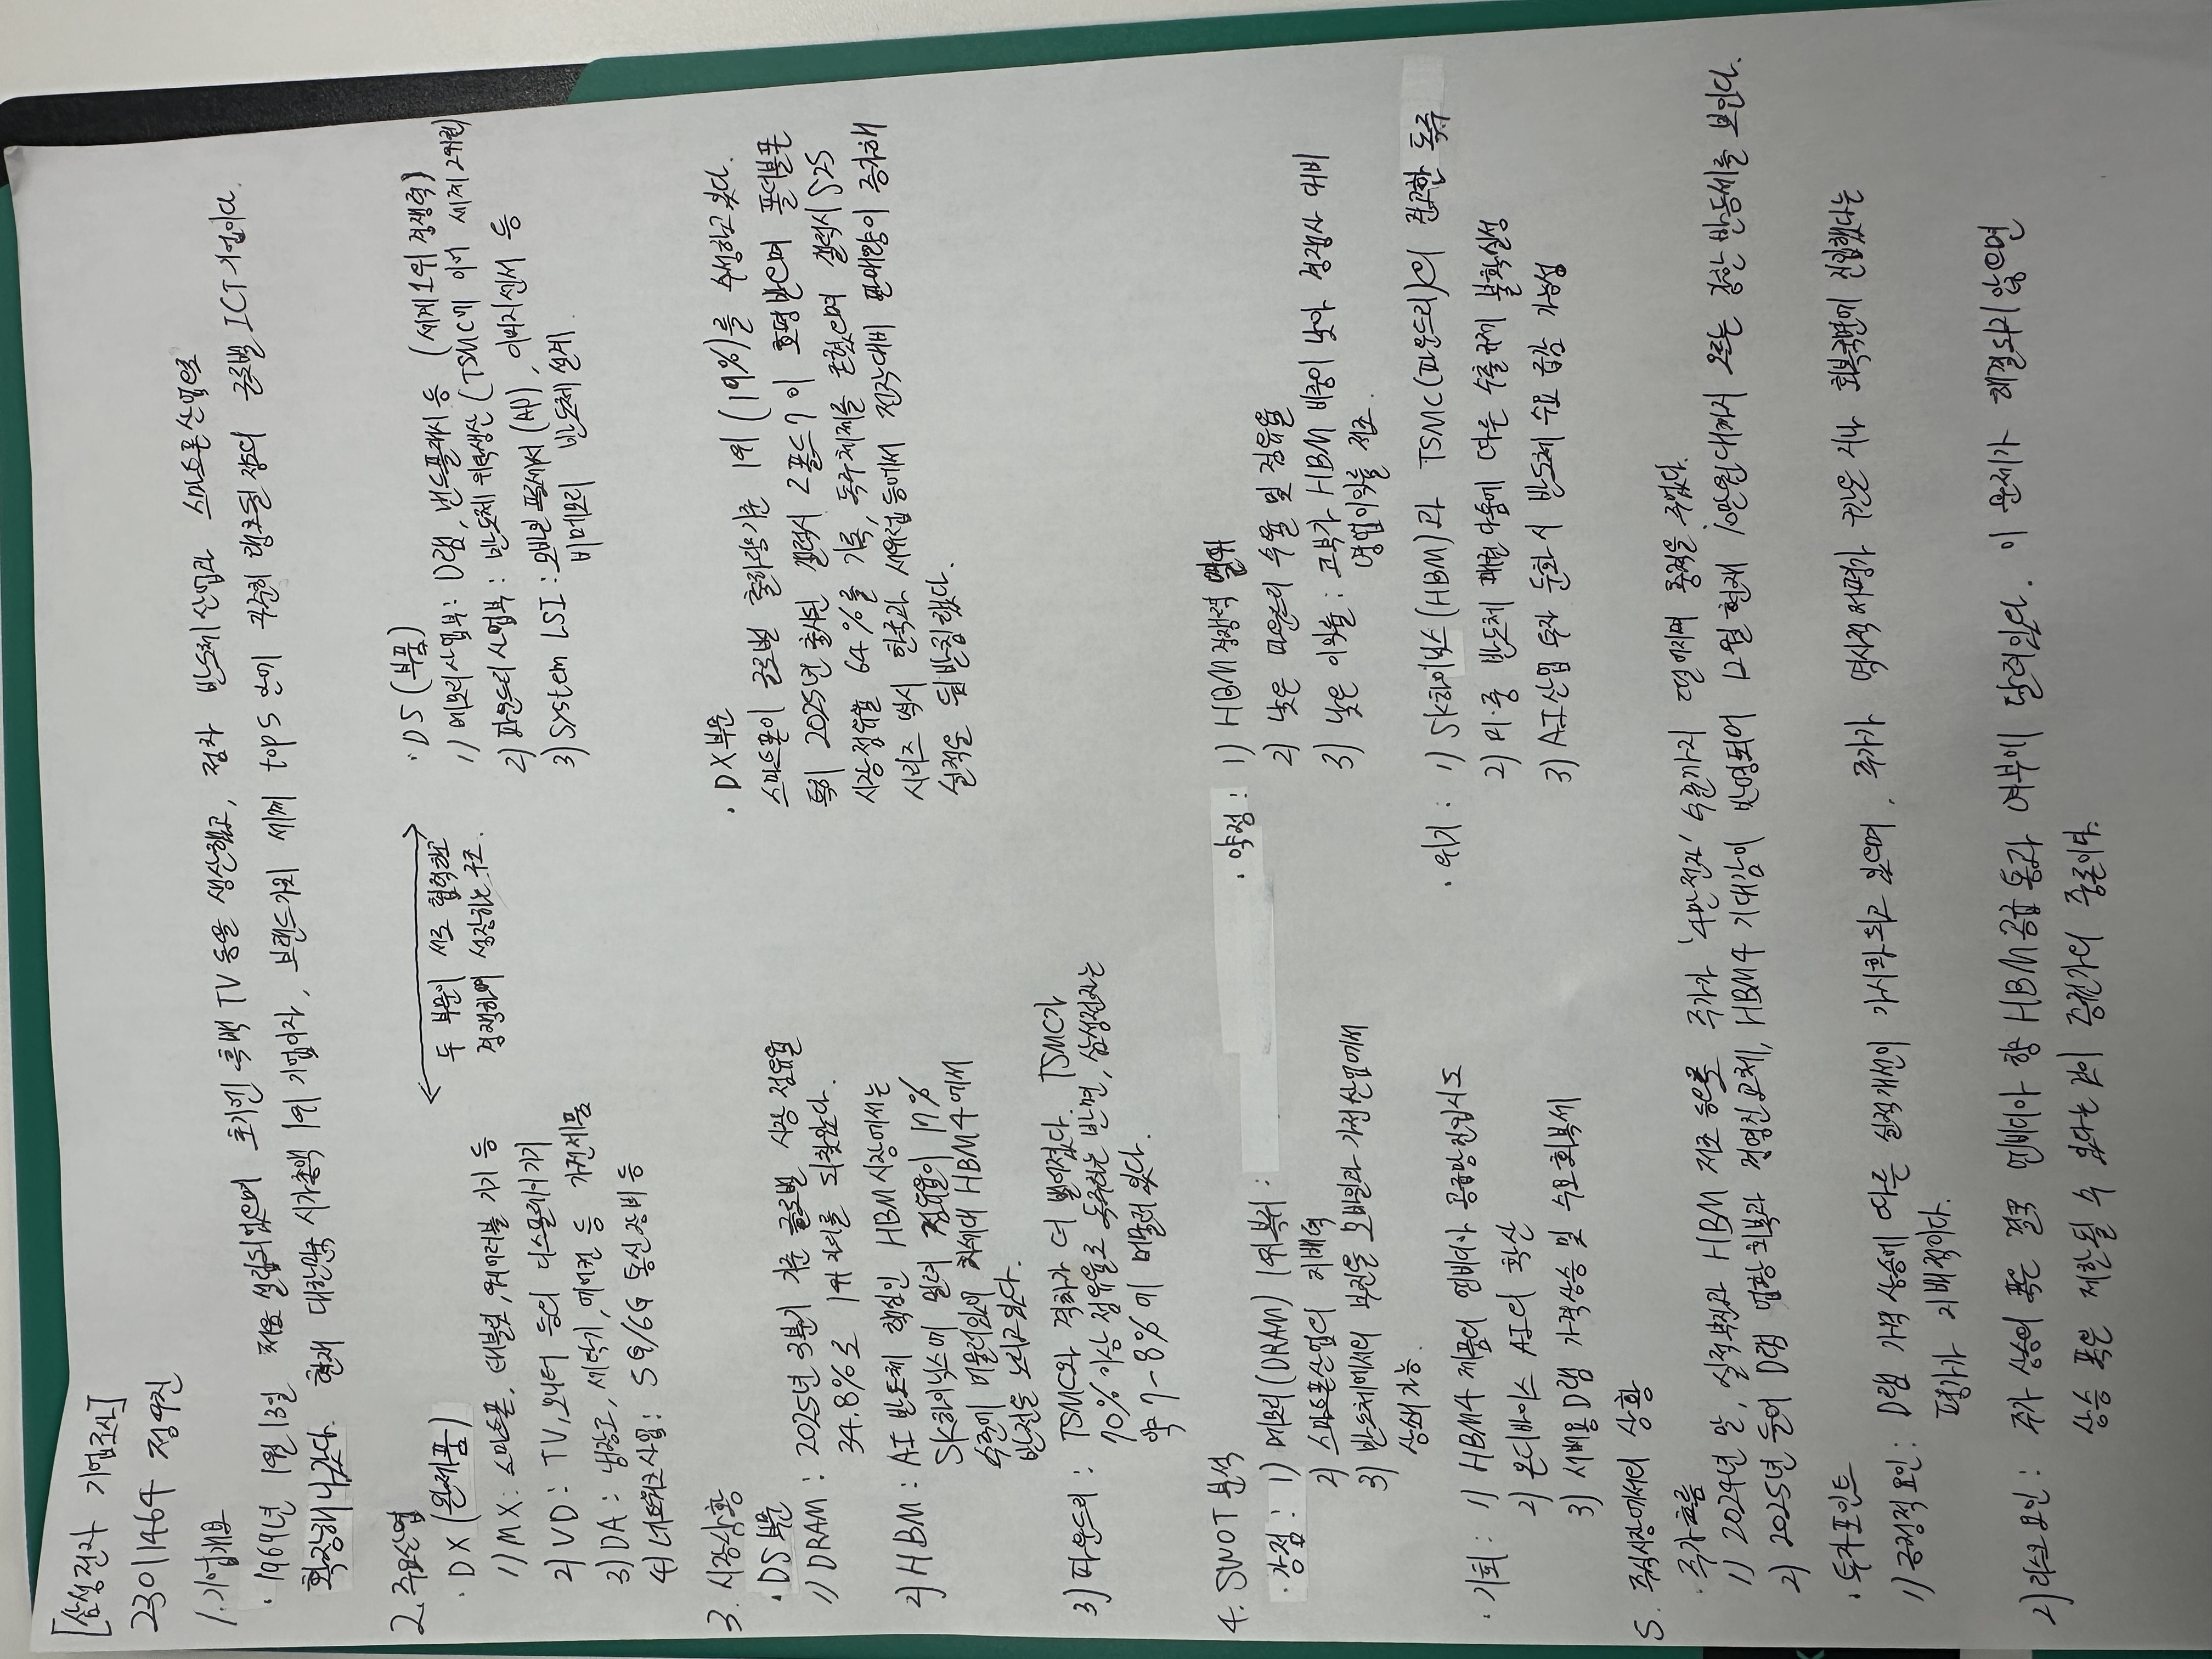 [삼성전자 기업조사]
23011464 정우진
1. 기업개요
· 1969년 1월 13일 처음 설립되었으며 초기엔 흑백 TV 등을 생산했고, 점차 반도체 산업과 스마트폰 산업으로
확장해 나갔다. 현재 대한민국 시가총액 1위 기업이자, 브랜드가치 세계 top 5 안에 꾸준히 랭크될 정도의 글로벌 ICT기업이다.
2. 주요산업
· DX (완제품)
1) MX : 스마트폰, 태블릿, 웨어러블 기기 등
2) VD : TV, 모니터 등의 디스플레이 기기
3) DA : 냉장고, 세탁기, 에어컨 등 가전제품
4) 네트워크 사업 : 5G/6G 통신장비 등
두 부문이 서로 협력하고
경쟁하며 성장하는 구조.
· DS (부품)
1) 메모리사업부 : D램, 낸드플래시 등 (세계 1위 경쟁력)
2) 파운드리 사업부 : 반도체 위탁생산 (TSMC에 이어 세계 2위권)
3) System LSI : 모바일 프로세서 (AP), 이미지센서 등
비메모리 반도체 설계.
3. 시장상황
· DS 부문
1) DRAM : 2025년 3분기 기준 글로벌 시장 점유율
34.8%로 1위 자리를 되찾았다.
2) HBM : AI 반도체 핵심인 HBM 시장에서는
SK하이닉스에 밀려 점유율이 17%
수준에 머물러있어 차세대 HBM4에서
반전을 노리고 있다.
3) 파운드리 : TSMC와 격차가 더 벌어졌다. TSMC가
70% 이상 점유율로 독주하는 반면, 삼성전자는
약 7-8%에 머물러 있다.
· DX 부문
스마트폰이 글로벌 출하량 기준 1위 (19%)를 수성하고 있다.
특히 2025년 출시된 갤럭시 Z폴드7이 호평받으며 폴더블폰
시장점유율 64%를 기록, 독주체제를 굳혔으며 갤럭시 S25
시리즈 역시 한국과 서유럽 등에서 전작대비 판매량이 증가해
실적을 뒷받침했다.
4. SWOT 분석
· 강점 : 1) 메모리(DRAM) 1위 복귀 :
2) 스마트폰산업의 지배력
3) 반도체에서의 부진을 모바일과 가전산업에서
상쇄 가능.
· 약점 : 1) HBM 경쟁력 열위
2) 낮은 파운드리 수율 및 점유율
3) 낮은 이익률 : 고부가 HBM 비중이 낮아 경쟁사 대비
영업이익률 저조.
· 기회 : 1) HBM4 제품의 엔비디아 공급망 진입시도
2) 온디바이스 AI의 확산
3) 서버용 D램 가격상승 및 수요회복세
· 위기 : 1) SK하이닉스(HBM)과 TSMC(파운드리)의 견고한 독주
2) 미·중 반도체 패권다툼에 따른 수출규제 불확실성
3) AI산업 투자 둔화시 반도체 수요 급감 가능성
5. 주식시장에서의 상황
· 주가흐름
1) 2024년 말, 실적부진과 HBM 저조 등으로 주가가 '4만전자' 수준까지 떨어지며 충격을 주었다.
2) 2025년 들어 D램 업황 회복과 경영진 교체, HBM4 기대감이 반영되어 12월 현재 10만원대까지 오르는 강한 반등세를 보인다.
· 투자포인트
1) 긍정적 요인 : D램 가격 상승에 따른 실적개선이 가시화되고 있으며, 주가가 역사적 저평가 구간을 지나 회복국면에 진입했다는
평가가 지배적이다.
2) 리스크 요인 : 주가 상승의 폭은 결국 엔비디아 향 HBM 공급 통과 여부에 달려있다. 이 문제가 해결되지 않으면
상승 폭은 제한될 수 있다는 것이 증권가의 중론이다.